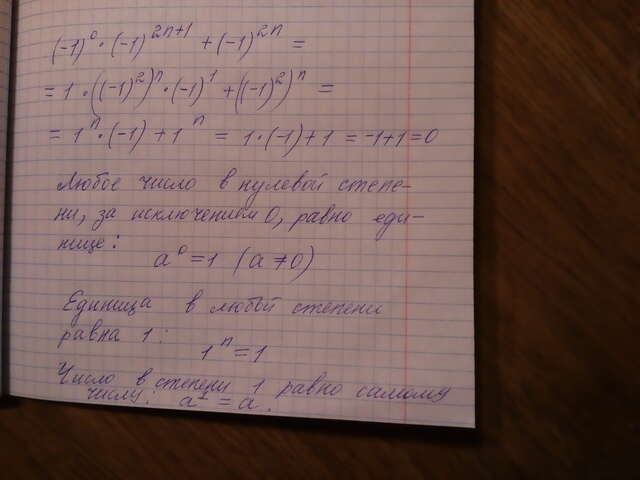 (-1)⁰·(-1)²ⁿ⁺¹ + (-1)²ⁿ =
= 1·((-1)²)ⁿ·(-1)¹ + ((-1)²)ⁿ =
= 1ⁿ·(-1) + 1ⁿ = 1·(-1) + 1 = -1+1=0
Любое число в нулевой степе-
ни, за исключением 0, равно еди-
нице:
a⁰ = 1 (a ≠ 0)
Единица в любой степени
равна 1:
1ⁿ = 1
Число в степени 1 равно самому
числу: a¹ = a.